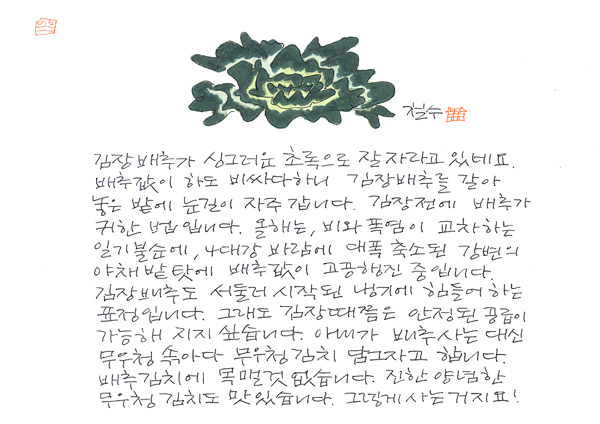 철수
김장배추가 싱그러운 초록으로 잘 자라고 있네요.
배추값이 하도 비싸다하니 김장배추를 갈아
놓은 밭에 눈길이 자주 갑니다. 김장전에 배추가
귀한 법입니다. 올해는, 비와 폭염이 교차하는
일기불순에, 4대강 바람에 대폭 축소된 강변의
야채밭 탓에 배추값이 고공행진 중입니다.
김장배추도 서둘러 시작된 냉기에 힘들어 하는
표정입니다. 그래도 김장때쯤은 안정된 공급이
가능해 지지 싶습니다. 아내가 배추사는 대신
무우청 솎아다 무우청김치 담그자고 합니다.
배추김치에 목맬것 없습니다. 진한 양념한
무우청 김치도 맛있습니다. 그렇게 사는거지요!